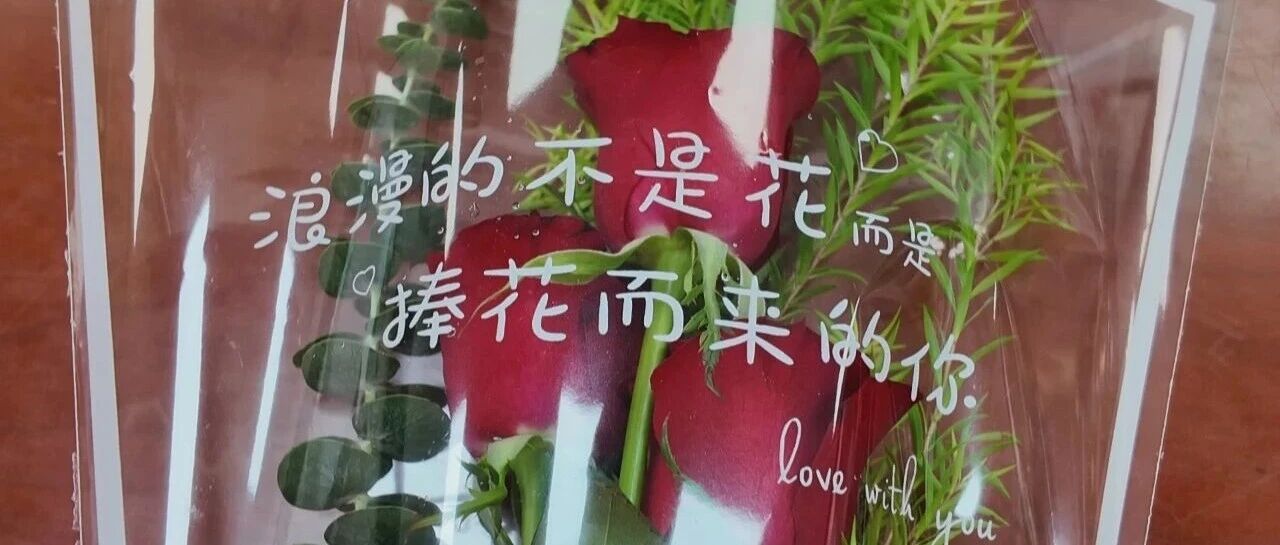 浪漫的不是花而是
捧花而来的你.
love with you